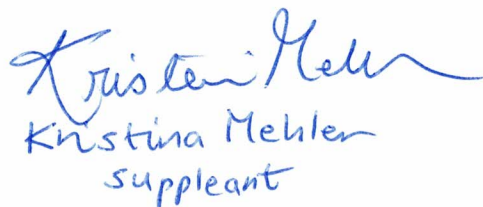 Kristina Mehler
Kristina Mehler
suppleant